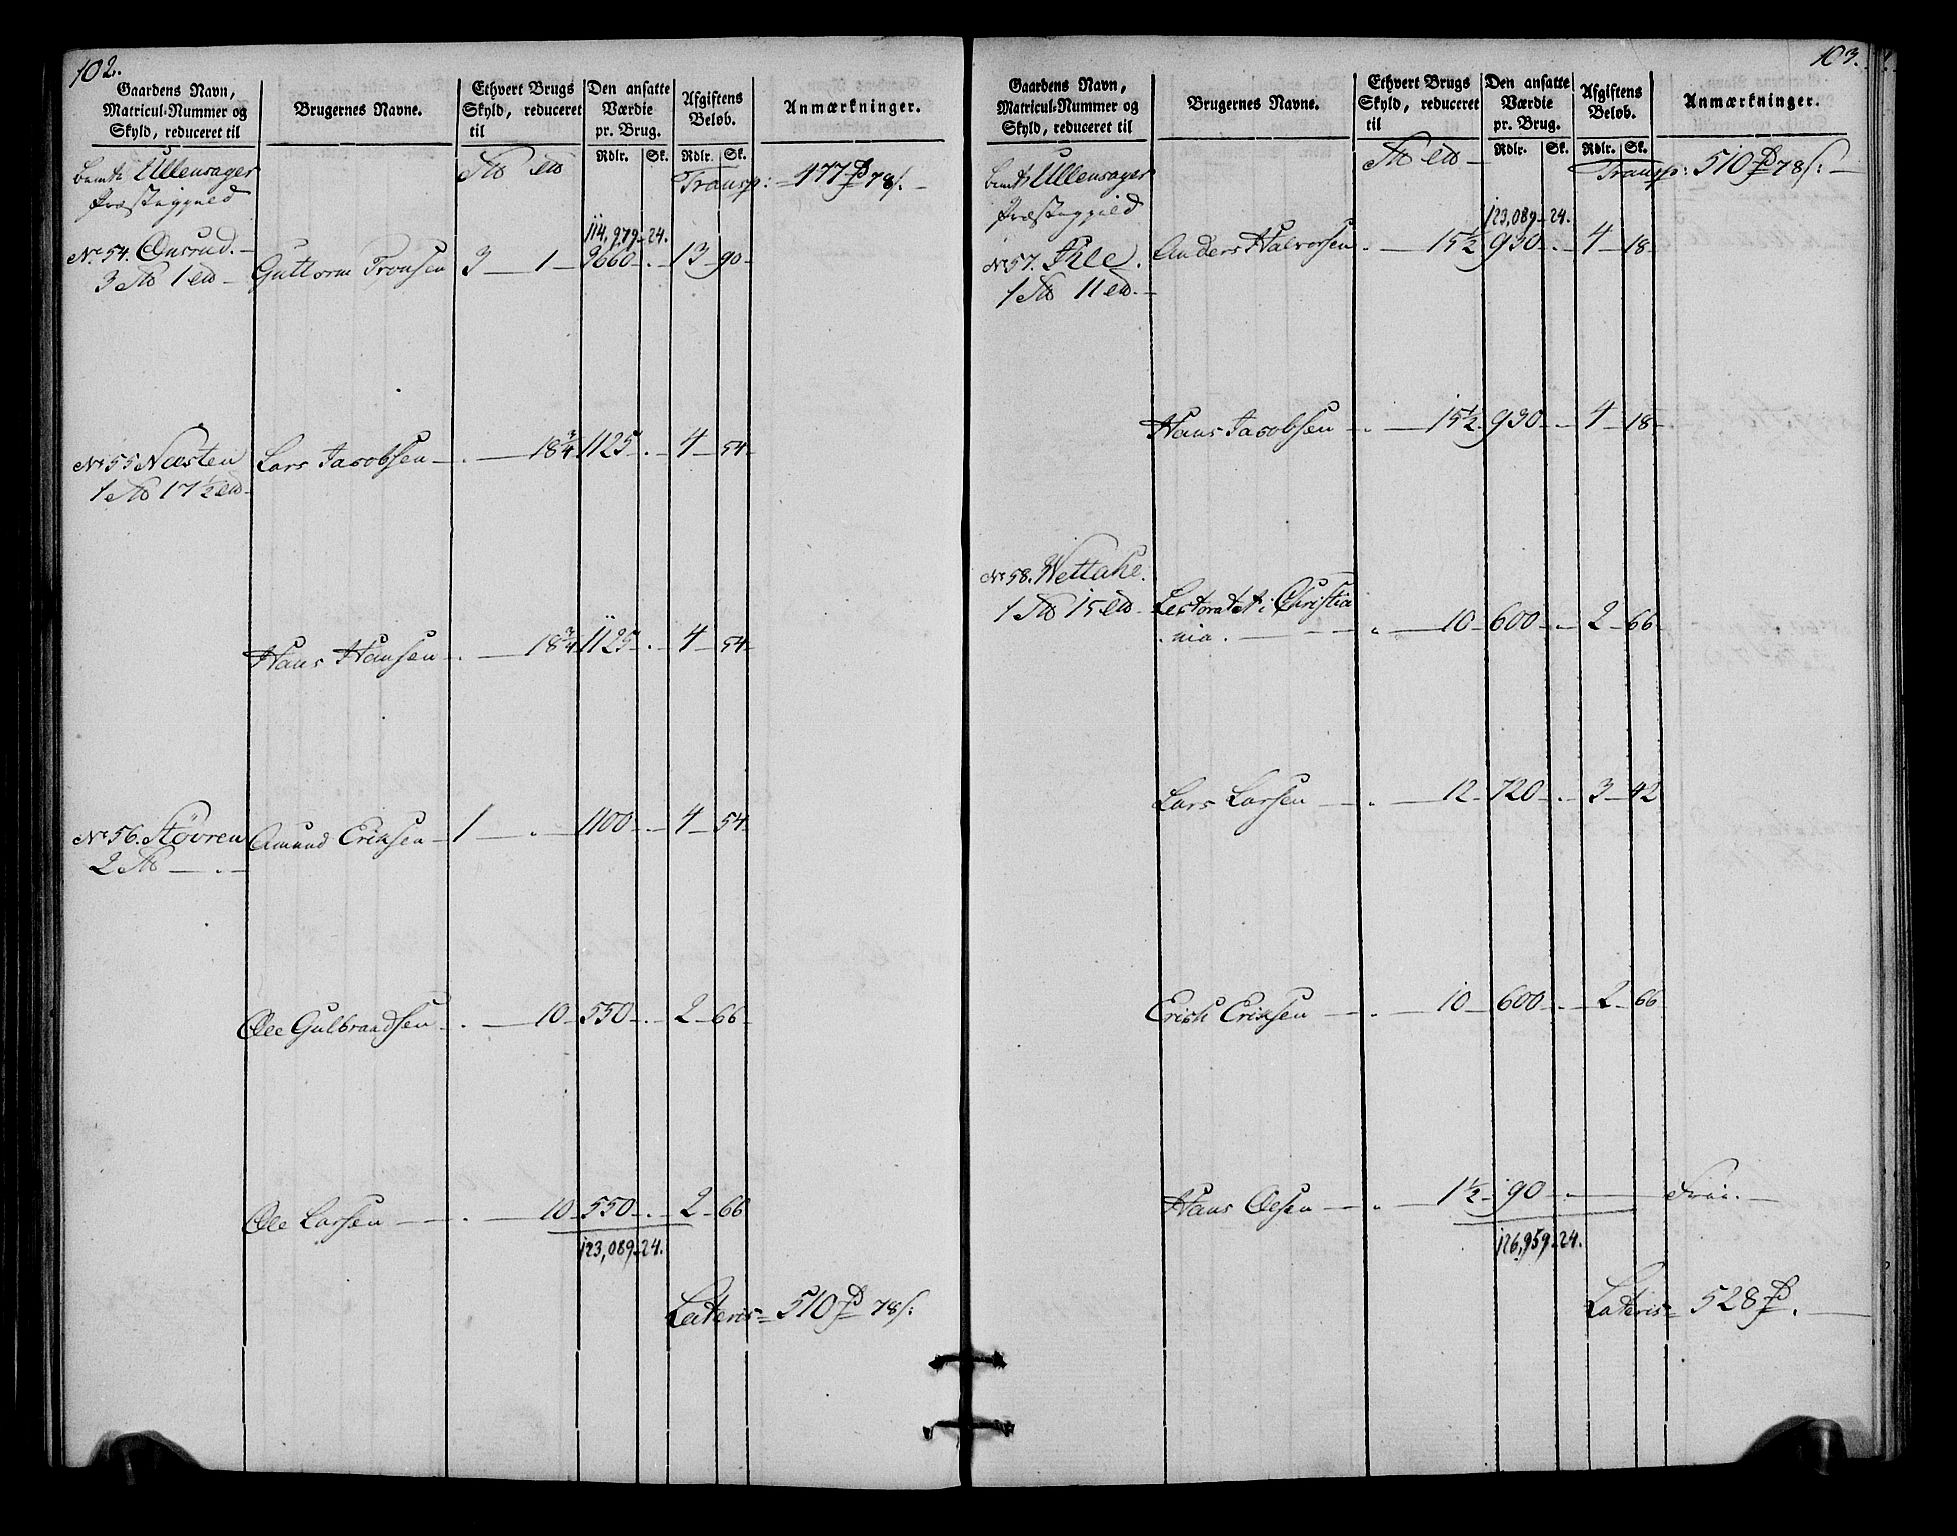 102.
Gaardens Navn,
Matricul-Nummer og
Skyld, reduceret til
Brugernes Navne.
Ethvert Brugs
Skyld, reduceret
til
Den ansatte
Værdie
pr. Brug.
Afgiftens
Beløb.
Anmærkninger.
Rdlr. Sk. Rdlr. Sk.
Ullensager
Præstegield
Transp: 477 78
114,979 - 24.
No 54. Onsrud.
3 1
Guttorm Tronsen 3 1 3660 - . 13 90
No 55 Næsten
1 17 1/2
Lars Jacobsen . 18 3/4 1125 - . 4 54
Hans Hansen . 18 3/4 1125 - . 4 54
No 56. Støvren
2
Amund Eriksen 1 . 1100 - . 4 54
Ole Gulbrandsen . 10 550 - . 2 66
Ole Larsen . 10 550 - . 2 66
123,089 - 24.
Lateris = 510 78
103.
Gaardens Navn,
Matricul-Nummer og
Skyld, reduceret til
Brugernes Navne.
Ethvert Brugs
Skyld, reduceret
til
Den ansatte
Værdie
pr. Brug.
Afgiftens
Beløb.
Anmærkninger.
Rdlr. Sk. Rdlr. Sk.
Ullensager
Præstegield
Transp: 510 78
123,089 - 24.
No 57. Ihle.
1 11
Anders Halvorsen . 15 1/2 930 . 4 18
Hans Jacobsen . 15 1/2 930 . 4 18
No 58. Wettahe.
1 15
Lectoratet i Christia
nia. 10 600 . 2 66
Lars Larsen 12 720 . 3 42
Erich Eriksen 10 600 . 2 66
Hans Olsen 1 1/2 90 . Frie.
126,959 - 24.
Lateris = 528